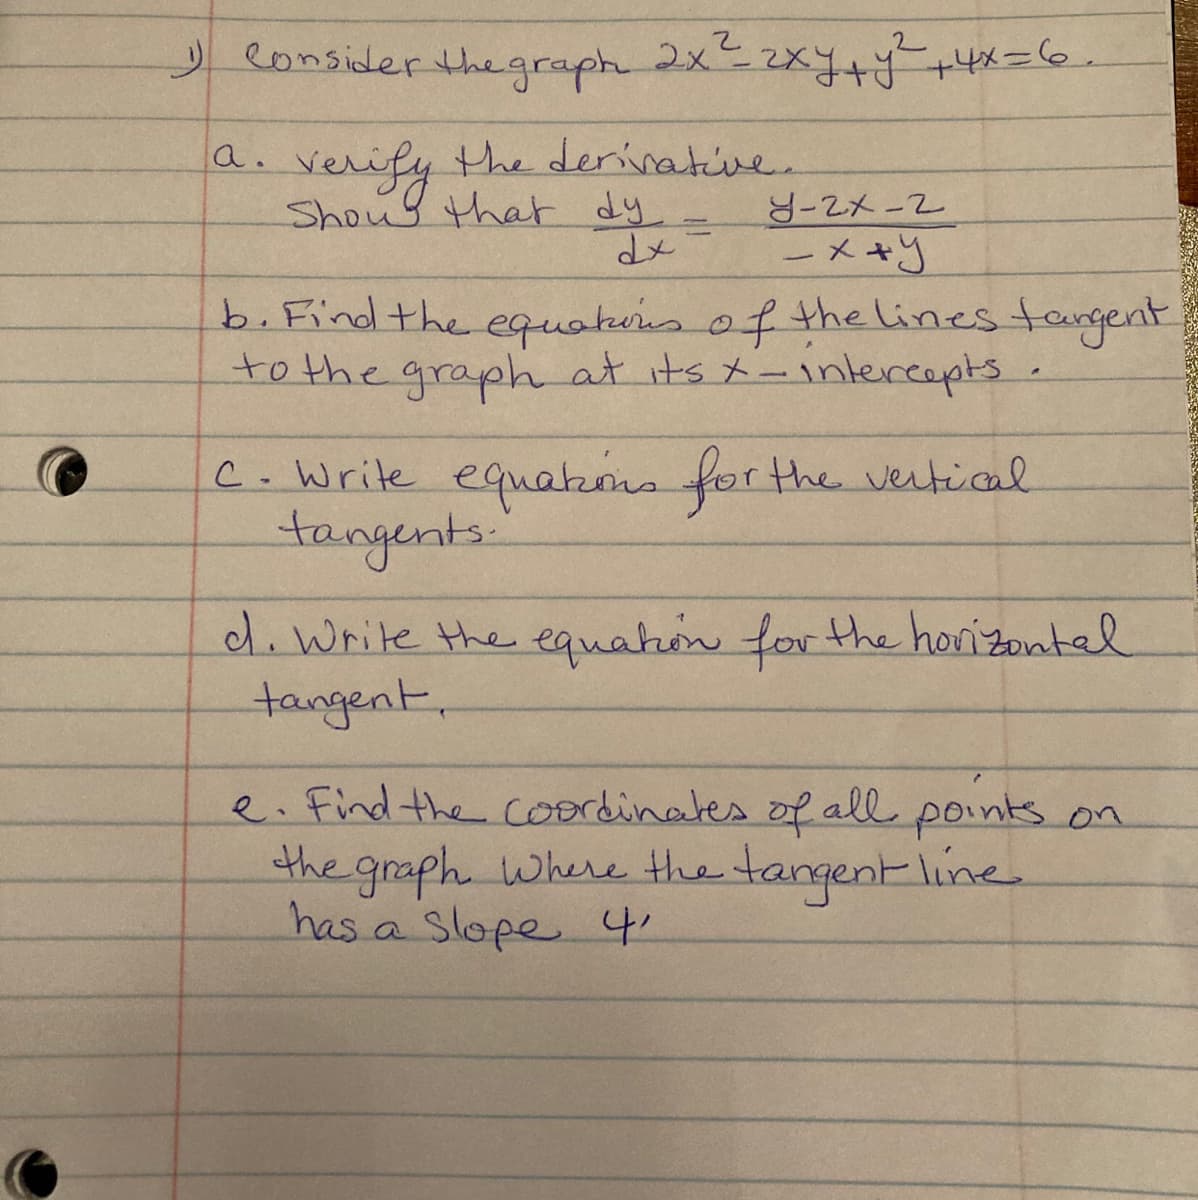 1) Consider the graph 2x² - 2xy + y² + 4x = 6.
a. verify the derivative.
Show that dy/dx = y-2x-2 / -x+y
b. Find the equations of the lines tangent
to the graph at its x-intercepts.
c. Write equations for the vertical
tangents.
d. Write the equation for the horizontal
tangent.
e. Find the coordinates of all points on
the graph where the tangent line
has a slope 4.